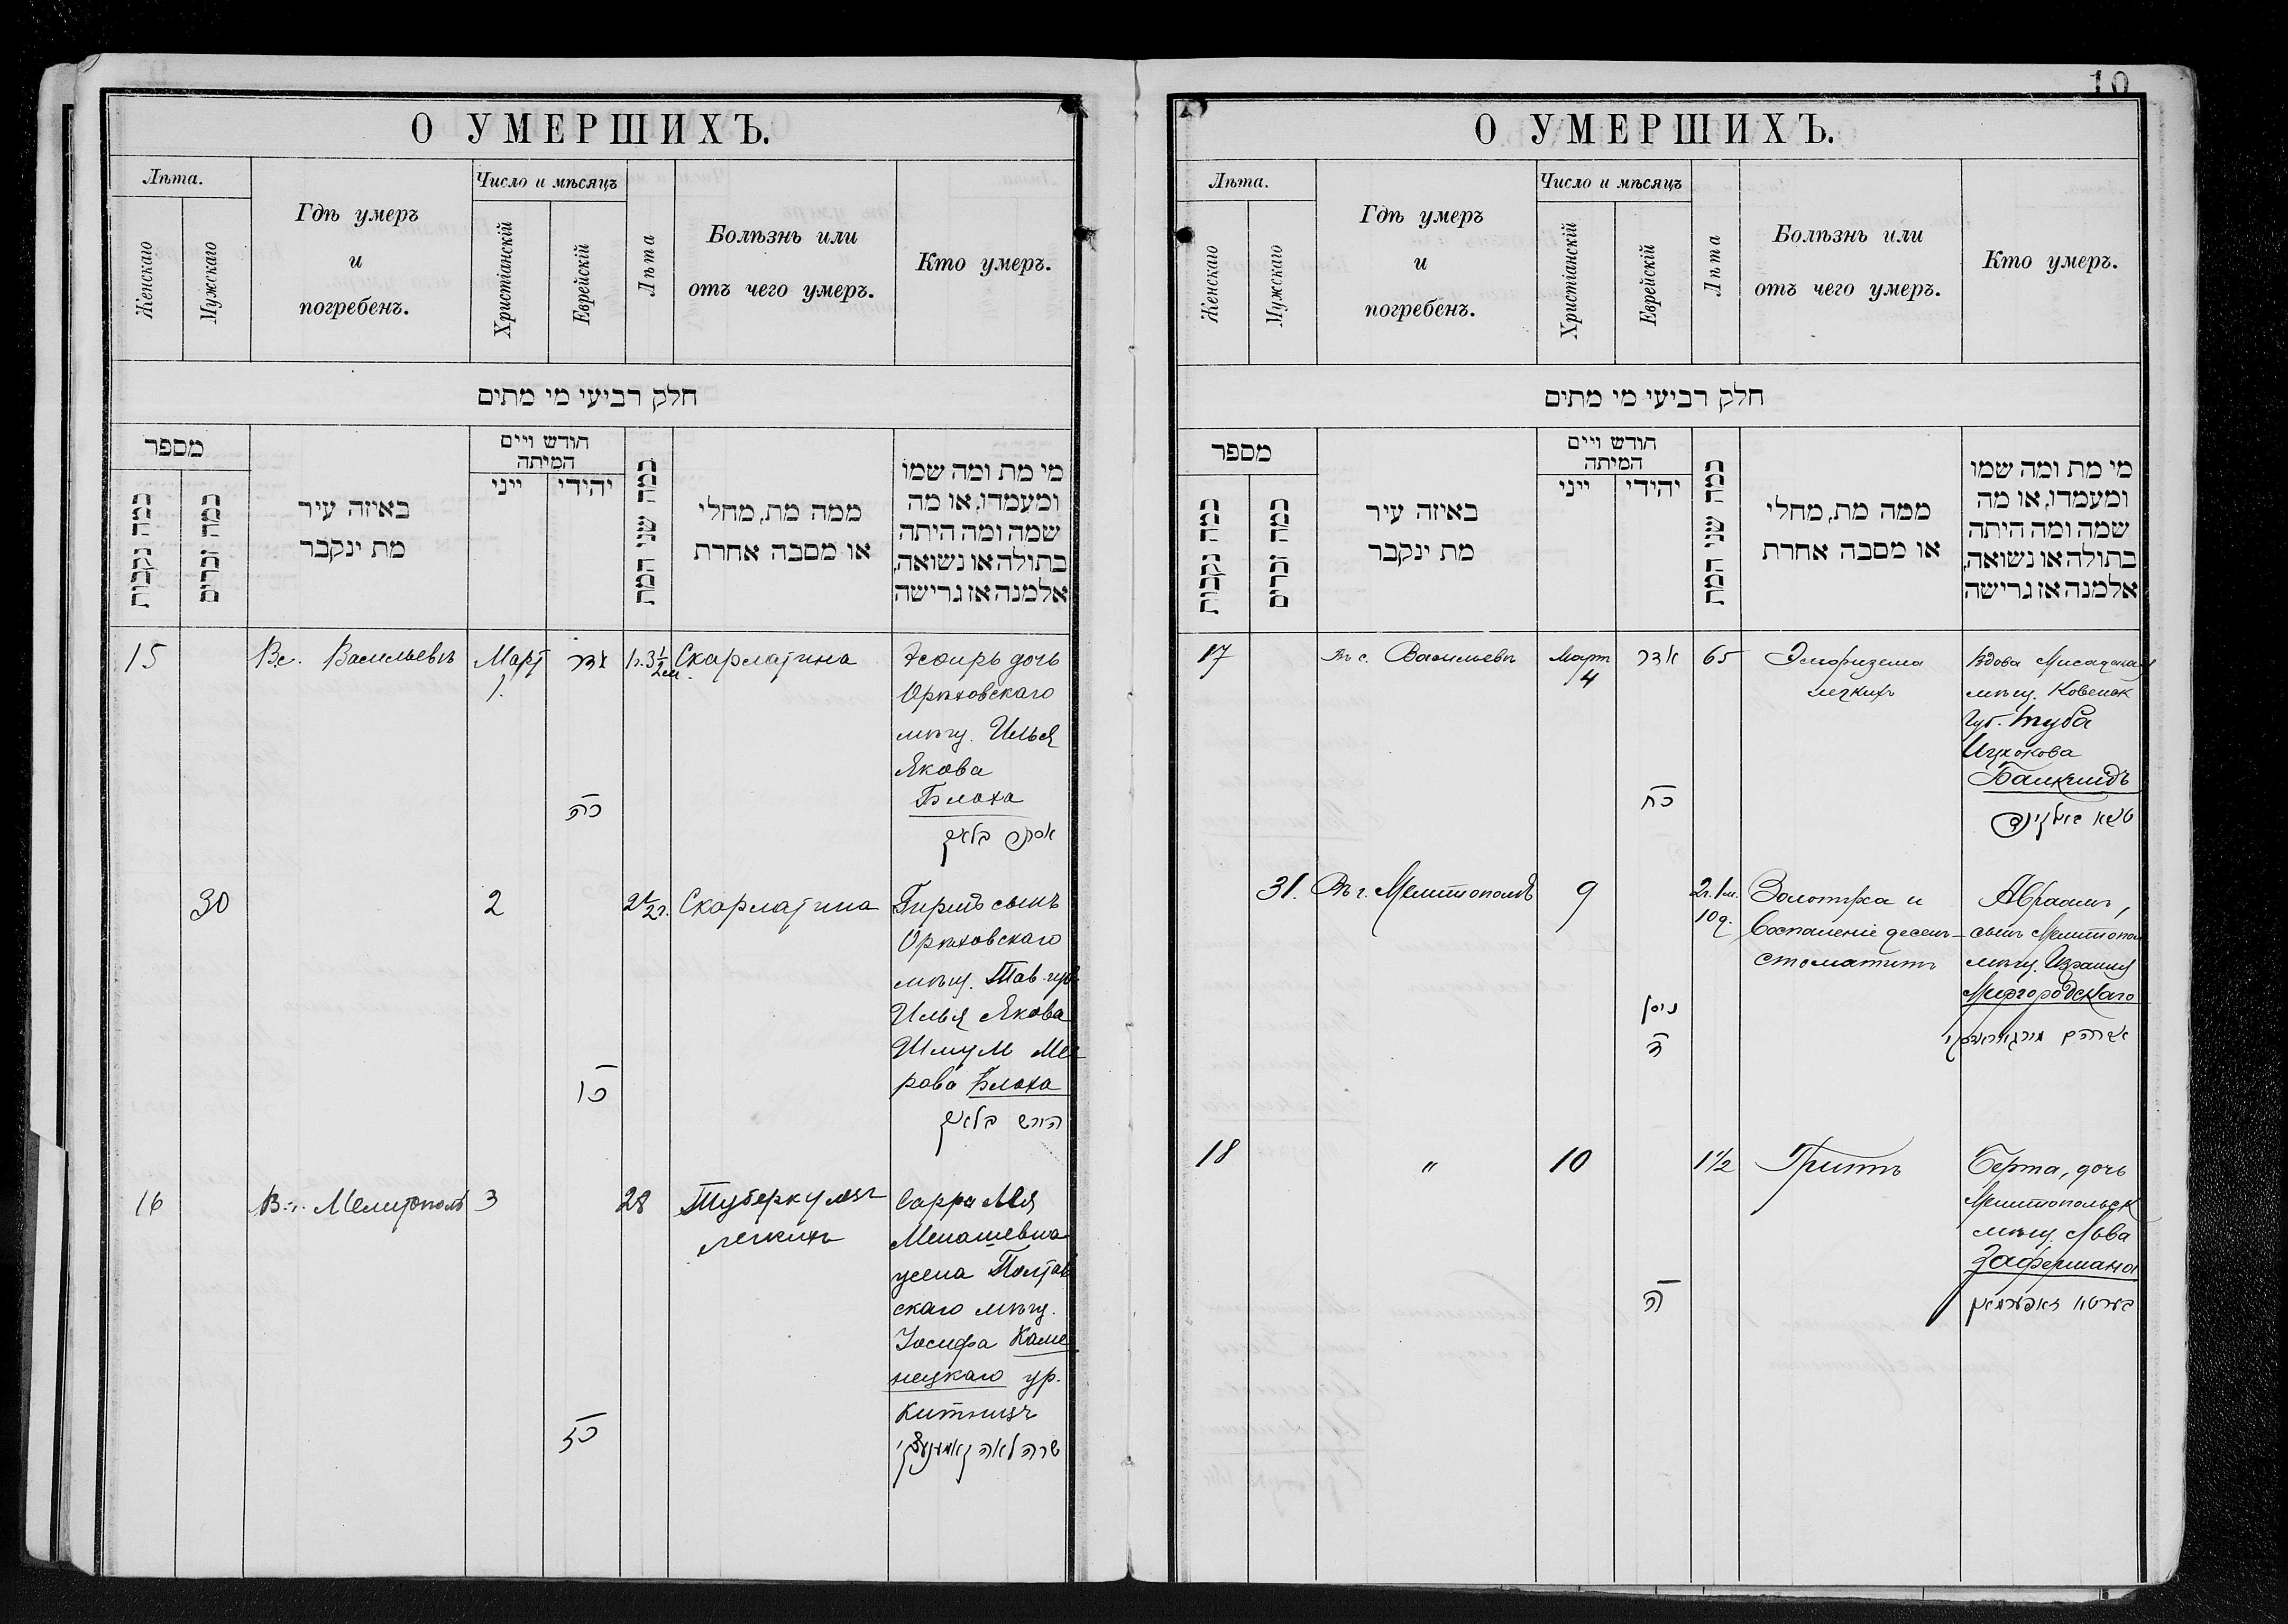 О УМЕРШИХЪ.
Лѣта.
Женскаго
Мужскаго
Гдѣ умеръ
и
погребенъ.
Число и мѣсяцъ
Христіанскій
Еврейскій
Лѣта
Болѣзнь или
отъ чего умеръ.
Кто умеръ.
חלק רביעי מי מתים
מספר
כמה נקבות
כמה זכרים
באיזה עיר
מת ינקבר
חודש ויים
המיתה
ייני
יהידי
כמה שני המת
ממה מת, מחלי
או מסבה אחרת
מי מת ומה שמו
ומעמדו, או מה
שמה ומה היתה
בתולה או נשואה,
אלמנה אז גרישה
15
Вс. Васильевкъ
Март
1.
אדר
כה
1г. 3 1/2 м.
Скарлатина
Эсѳирь дочь
Орѣховскаго
мѣщ. Илья
Якова
Блоха
אסתר בלאך
30
2
כו
2 1/2 г.
Скарлатина
Гиршъ сынъ
Орѣховскаго
мѣщ. Тав. губ.
Илья Якова
Шмуль Мее
рова Блоха
הירש בלאך
16
В г. Мелитополѣ
3
כז
28
Туберкулезъ
легкихъ
Сарра Лея
Менашевна
жена Полтав
скаго мѣщ.
Іосифа Каме
нецкаго ур.
Китницъ
שרה לאה קאמענעצקי
О УМЕРШИХЪ.
10
Лѣта.
Женскаго
Мужскаго
Гдѣ умеръ
и
погребенъ.
Число и мѣсяцъ
Христіанскій
Еврейскій
Лѣта
Болѣзнь или
отъ чего умеръ.
Кто умеръ.
חלק רביעי מי מתים
מספר
כמה נקבות
כמה זכרים
באיזה עיר
מת ינקבר
חודש ויים
המיתה
ייני
יהידי
כמה שני המת
ממה מת, מחלי
או מסבה אחרת
מי מת ומה שמו
ומעמדו, או מה
שמה ומה היתה
בתולה או נשואה,
אלמנה אז גרישה
17
Въ с. Васильевкѣ
Март
4
אדר
כח
65
Эмфизема
легкихъ
Вдова
мѣщ. Ковенск
Губ. Туба
Ицхокова
טובא
31.
Въ г. Мелитополѣ
9
ניסן
2г. 1м.
10д.
Золотуха и
Воспаленіе десенъ-
стоматитъ
Абраамъ,
сынъ Мелитопол
мѣщ. Израиля
Миргородскаго
אברהם מירגאראדסקי
18
"
10
ה
1 1/2
Гриппъ
Берта, дочь
Мелитопольск
мѣщ. Лова
Зафермана
בערטא זאפערמאן